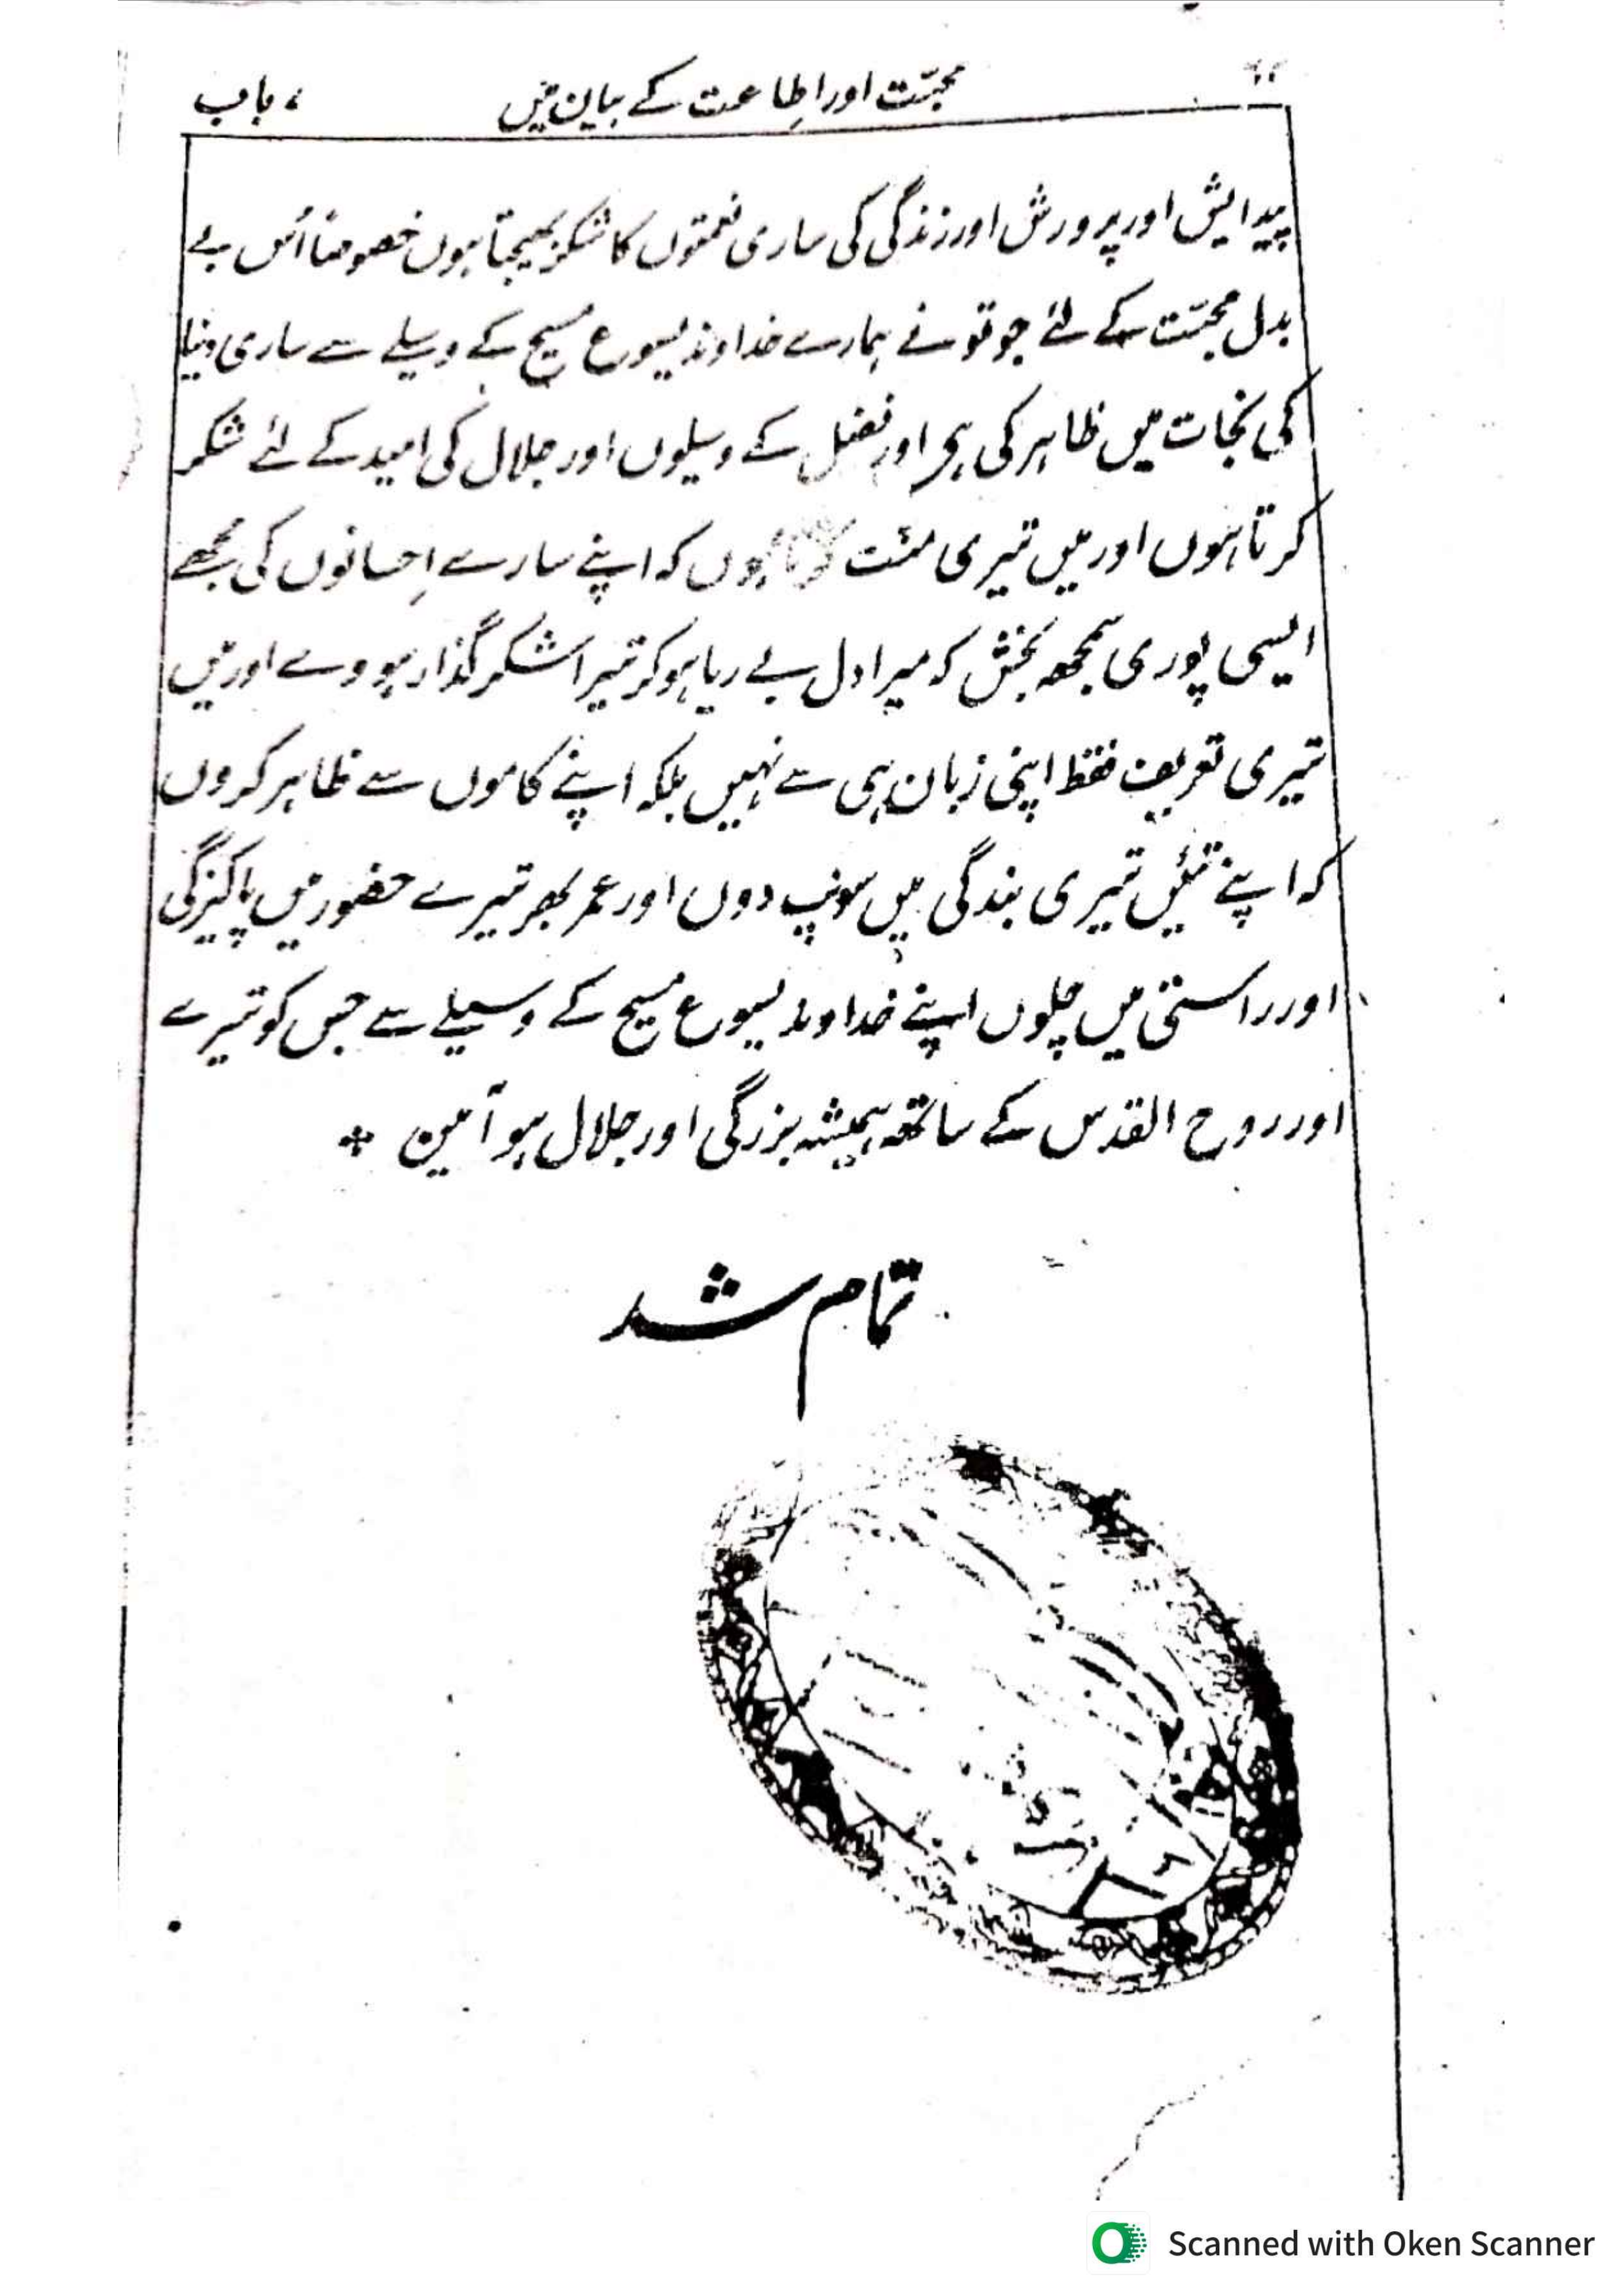 محبّت اور اِطاعت کے بیان میں ۷ باب
پیدایش اور پرورش اور زندگی کی ساری نعمتوں کا شکر بھیجتا ہوں خصوصاً اُس بے
بدل محبّت کے لئے جو تو نے ہمارے خداوند یسوع مسیح کے وسیلے سے ساری دنیا
کی نجات میں ظاہر کی ہی اور فضل کے وسیلوں اور جلال کی امید کے لئے شکر
کرتا ہوں اور میں تیری منّت کرتا ہوں کہ اپنے سارے اِحسانوں کی مجھے
ایسی پوری سمجھ بخش کہ میرا دل بے ریا ہو کر تیرا شکر گذار ہووے اور میں
تیری تعریف فقط اپنی زبان ہی سے نہیں بلکہ اپنے کاموں سے ظاہر کروں
کہ اپنے تئیں تیری بندگی میں سونپ دوں اور عمر بھر تیرے حضور میں پاکیزگی
اور راستی میں چلوں اپنے خداوند یسوع مسیح کے وسیلے سے جس کو تیرے
اور روح القدس کے ساتھ ہمیشہ بزرگی اور جلال ہو آمین ٭
تمام شد
Scanned with Oken Scanner